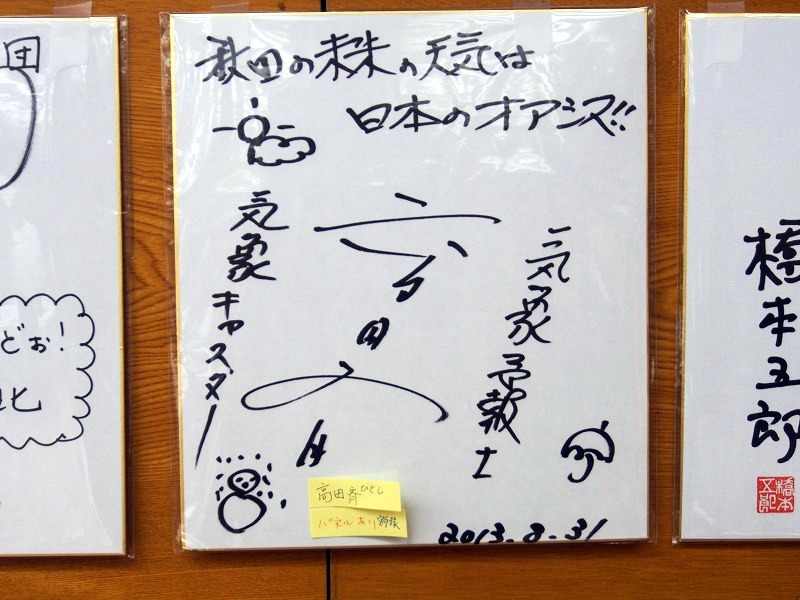 団
どぉ!
秋田の未来の天気は
日本のオアシス!!
気象予報士
気象キャスター
高田斉 ひとし
パネルあり
2013.8.31
橋本五郎
橋本五郎